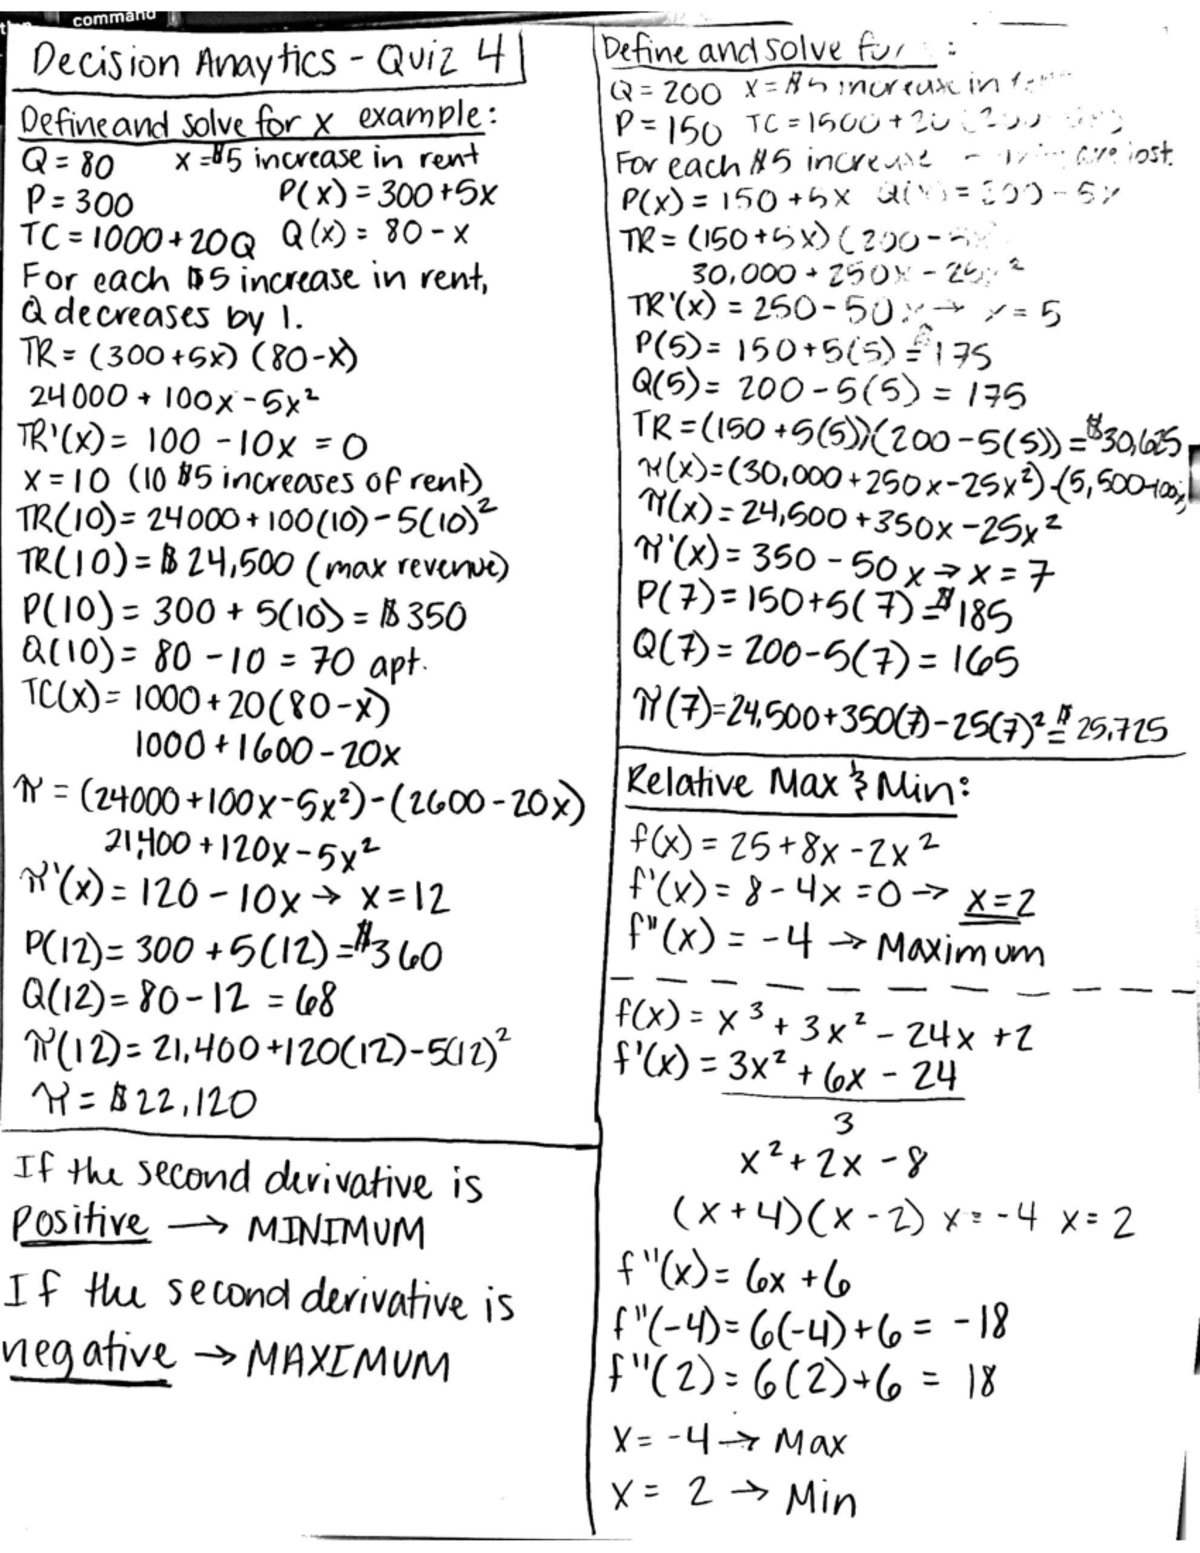 command
Decision Anaytics - Quiz 4
Define and solve for x example:
Q = 80 x = $5 increase in rent
P = 300 P(x) = 300 + 5x
TC = 1000 + 20Q Q(x) = 80 - x
For each $5 increase in rent,
Q decreases by 1.
TR = (300 + 5x) (80 - x)
24000 + 100x - 5x²
TR'(x) = 100 - 10x = 0
x = 10 (10 $5 increases of rent)
TR(10) = 24000 + 100(10) - 5(10)²
TR(10) = $24,500 (max revenue)
P(10) = 300 + 5(10) = $350
Q(10) = 80 - 10 = 70 apt.
TC(x) = 1000 + 20(80 - x)
1000 + 1600 - 20x
π = (24000 + 100x - 5x²) - (2600 - 20x)
21,400 + 120x - 5x²
π'(x) = 120 - 10x → x = 12
P(12) = 300 + 5(12) = $360
Q(12) = 80 - 12 = 68
π(12) = 21,400 + 120(12) - 5(12)²
π = $22,120
If the second derivative is
positive → MINIMUM
If the second derivative is
negative → MAXIMUM
Define and solve for :
Q = 200 x = $5 increase in
P = 150 TC = 1500 + 20
For each $5 increase are lost.
P(x) = 150 + 5x Q(x) = 200 - 5x
TR = (150 + 5x) (200 -
30,000 + 250x - 25x²
TR'(x) = 250 - 50x → x = 5
P(5) = 150 + 5(5) = $175
Q(5) = 200 - 5(5) = 175
TR = (150 + 5(5))(200 - 5(5)) = $30,625
π(x) = (30,000 + 250x - 25x²) - (5,500 - 100x)
π(x) = 24,500 + 350x - 25x²
π'(x) = 350 - 50x → x = 7
P(7) = 150 + 5(7) = $185
Q(7) = 200 - 5(7) = 165
π(7) = 24,500 + 350(7) - 25(7)² = $25,725
Relative Max & Min:
f(x) = 25 + 8x - 2x²
f'(x) = 8 - 4x = 0 → x = 2
f"(x) = -4 → Maximum
f(x) = x³ + 3x² - 24x + 2
f'(x) = 3x² + 6x - 24
3
x² + 2x - 8
(x + 4)(x - 2) x = -4 x = 2
f"(x) = 6x + 6
f"(-4) = 6(-4) + 6 = -18
f"(2) = 6(2) + 6 = 18
x = -4 → Max
x = 2 → Min